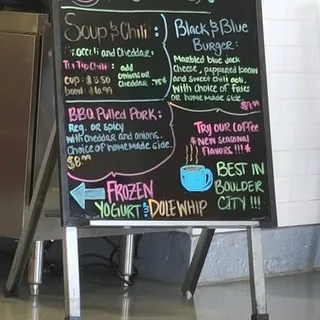 Soup & Chili:
Broccoli and Cheddar.
Tri-Tip Chili : add
onions or
cheddar .75¢
cup : $3.50
bowl :
Black & Blue
Burger:
Marbled blue jack
cheese, peppered bacon
and sweet chili aoli.
with choice of fries
or home made side.
$9.99
BBQ Pulled Pork:
Reg. or Spicy
with cheddar and onions.
Choice of homemade side.
$8.99
Try our Coffee
* New Seasonal
Flavors !!! *
Best in
Boulder
City !!!
Frozen
Yogurt & Dole Whip